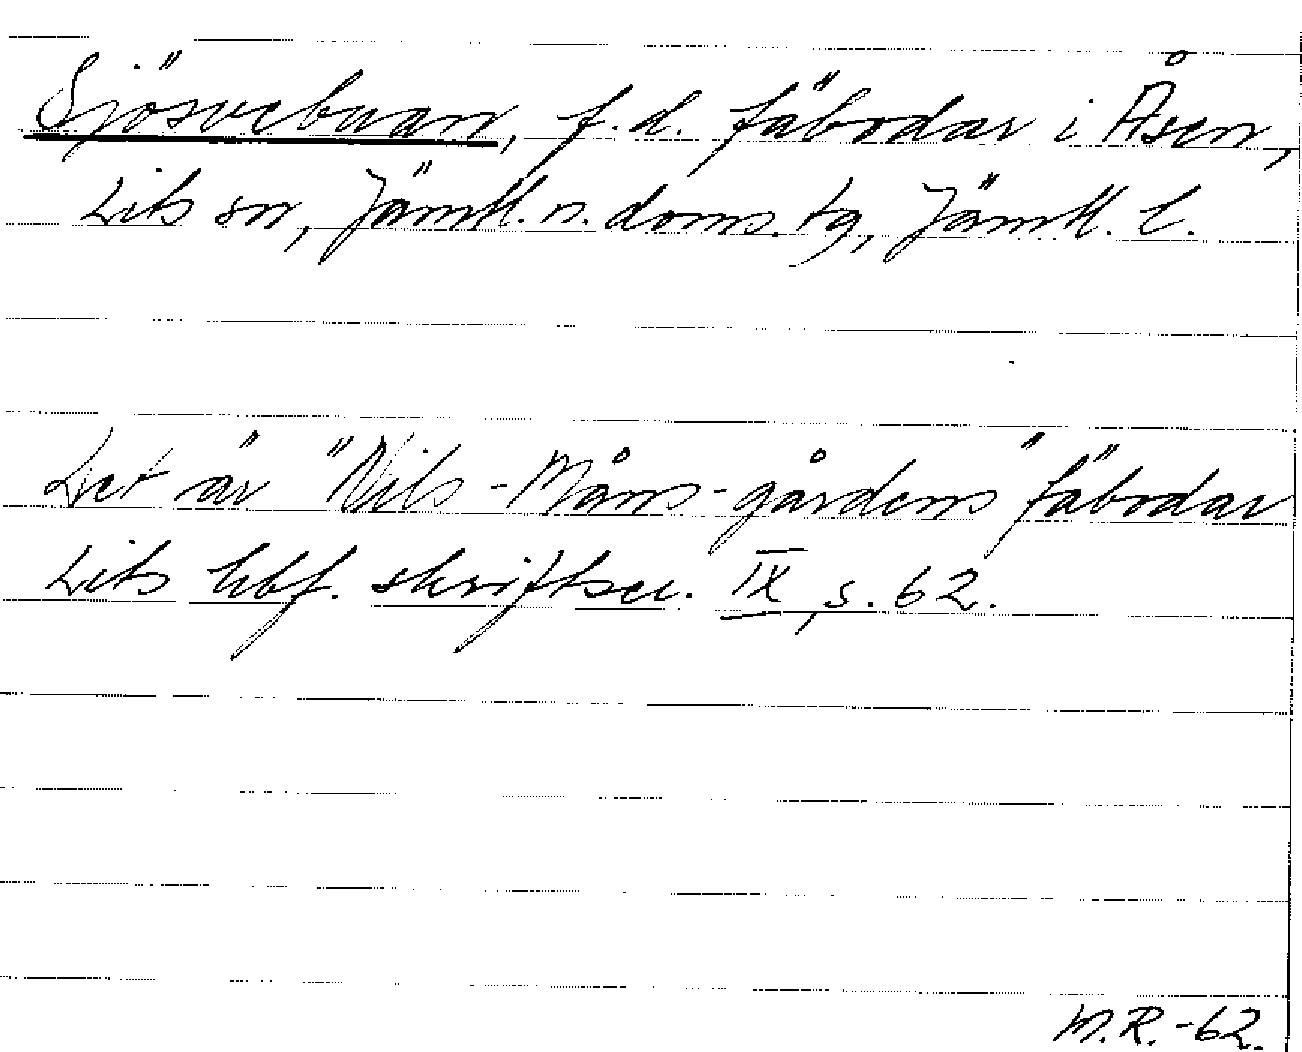 Sjösvebuan, f.d. fäbodar i Åsen,
Lits sn, Jämtl. n. doms. tg, Jämtl. l.
Det är "Nils-Måns-gårdens" fäbodar
Lits hbf. skriftser. IX, s. 62.
M.R.-62.